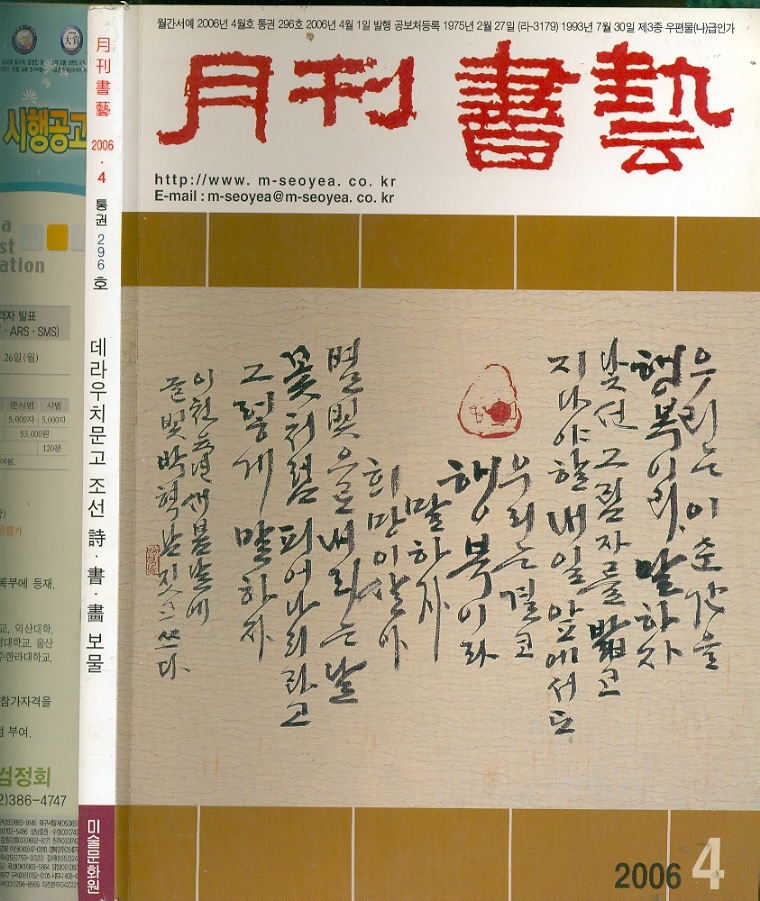 월간서예 2006년 4월호 통권 296호 2006년 4월 1일 발행 공보처등록 1975년 2월 27일 (라-3179) 1993년 7월 30일 제3종 우편물(나)급인가
月刊書藝
http://www. m-seoyea. co. kr
E-mail : m-seoyea@m-seoyea. co. kr
우리는 이 순간을
행복이라 말하자
낮선 그림자를 밟고
지나야할 내일 앞에서도
우리는 결코
행복이라
말하자
희망이 살아
별빛으로 내리는 날
꽃처럼 피어나리라고
그렇게 말하자
이천 새봄날에
늘빛 박혁남 짓고 쓰다
2006 4
月刊書藝 2006 · 4 통권 296 호
데라우치문고 조선 詩 · 書 · 畵 보물
미술문화원
시행공고
격자 발표
· ARS · SMS)
26일(월)
준사범 사범
5,000자 5,000자
55,000원
120분
록부에 등재,
교, 익산대학,
주한라대학교,
참가자격을
부여.
검정회
2)386-4747